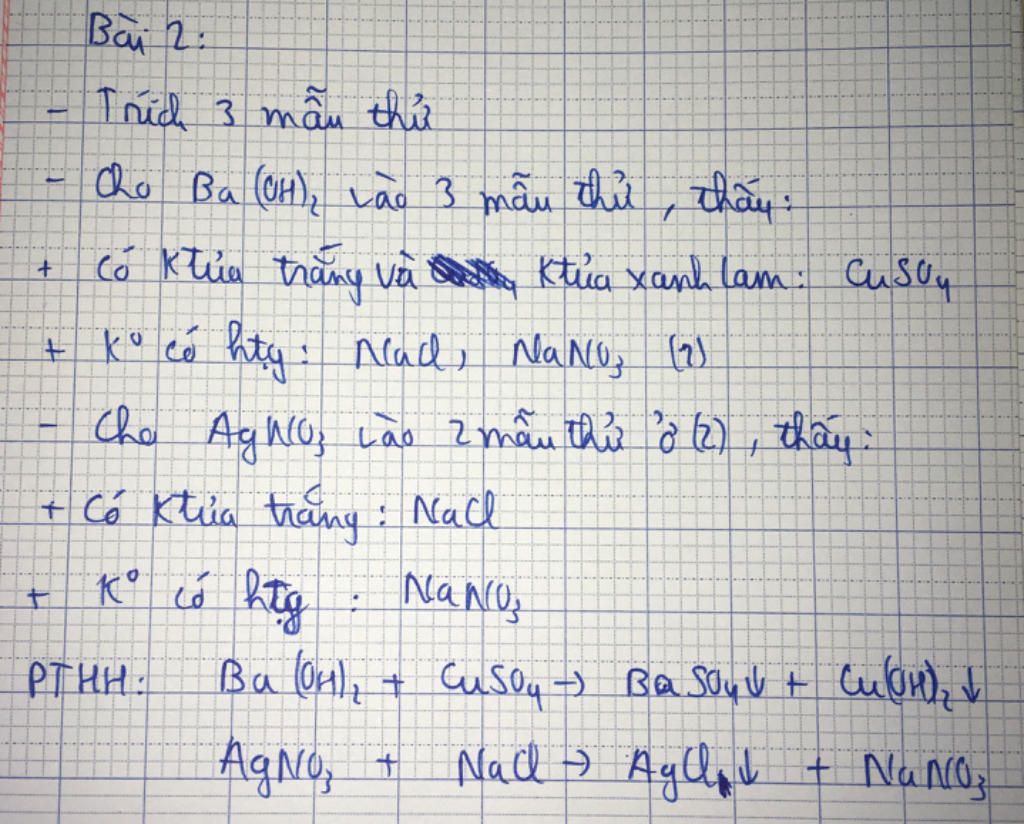 Bài 2:
- Trích 3 mẫu thử
- Cho Ba(OH)₂ vào 3 mẫu thử, thấy:
+ Có Ktủa trắng và Ktủa xanh lam: CuSO₄
+ K⁰ có htg: NaCl, NaNO₃ (2)
- Cho AgNO₃ vào 2 mẫu thử ở (2), thấy:
+ Có Ktủa trắng: NaCl
+ K⁰ có htg : NaNO₃
PTHH: Ba(OH)₂ + CuSO₄ → BaSO₄↓ + Cu(OH)₂↓
AgNO₃ + NaCl → AgCl↓ + NaNO₃